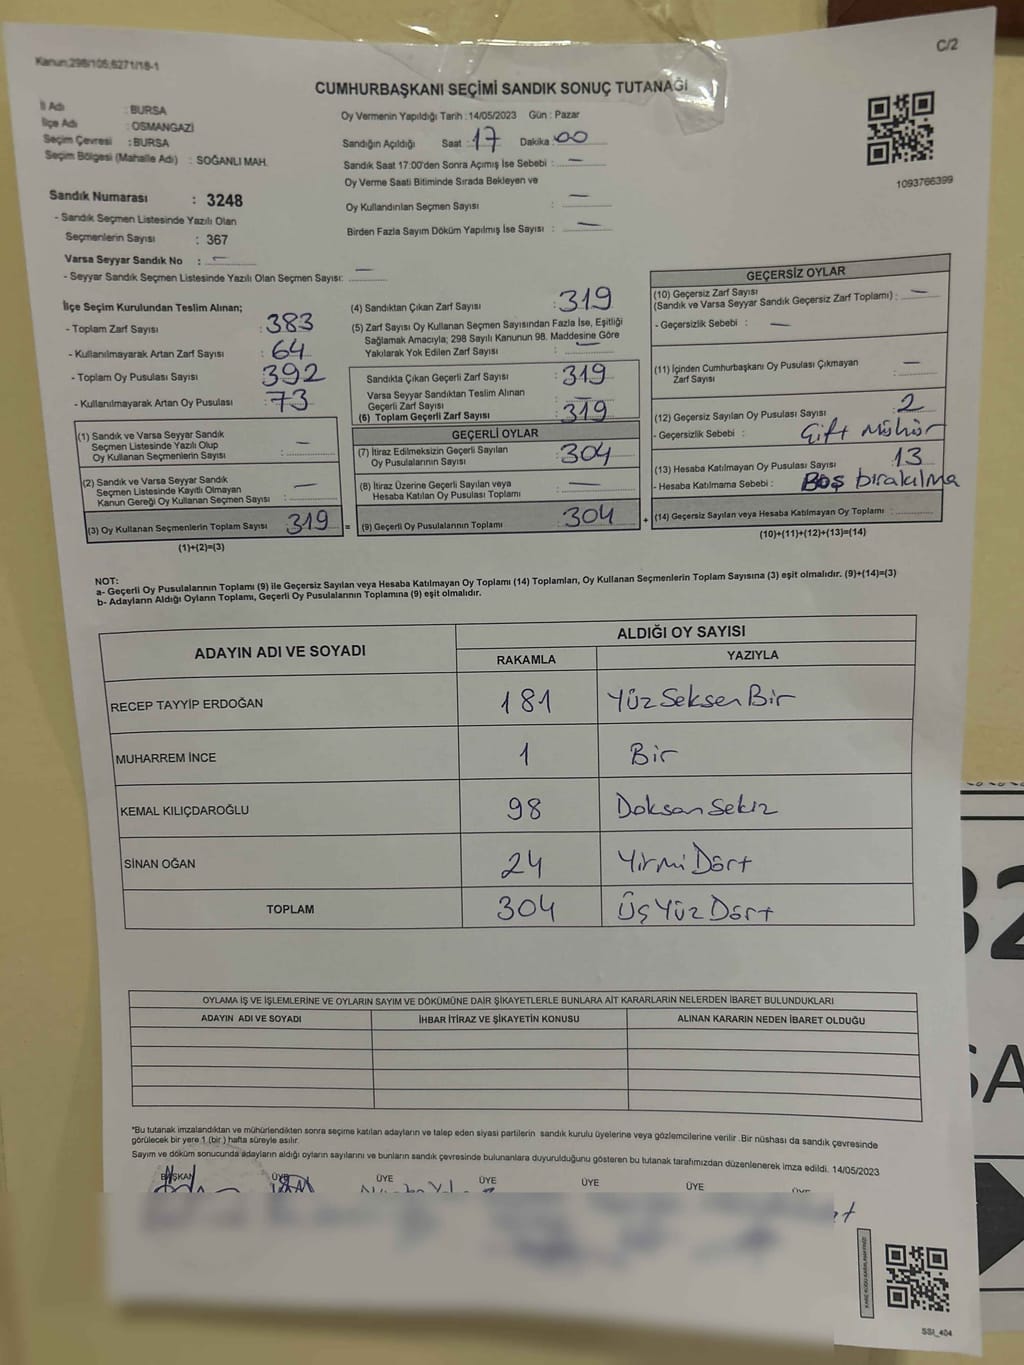 Kanun:298/105;6271/18-1
C/2
CUMHURBAŞKANI SEÇİMİ SANDIK SONUÇ TUTANAĞI
İl Adı : BURSA
İlçe Adı : OSMANGAZİ
Seçim Çevresi : BURSA
Seçim Bölgesi (Mahalle Adı) : SOĞANLI MAH.
Oy Vermenin Yapıldığı Tarih : 14/05/2023 Gün : Pazar
Sandığın Açıldığı Saat : 17 Dakika : 00
Sandık Saat 17:00'den Sonra Açımış İse Sebebi : —
Oy Verme Saati Bitiminde Sırada Bekleyen ve
Oy Kullandırılan Seçmen Sayısı : —
Birden Fazla Sayım Döküm Yapılmış İse Sayısı : —
1093766399
Sandık Numarası : 3248
- Sandık Seçmen Listesinde Yazılı Olan
Seçmenlerin Sayısı : 367
Varsa Seyyar Sandık No : —
- Seyyar Sandık Seçmen Listesinde Yazılı Olan Seçmen Sayısı: —
İlçe Seçim Kurulundan Teslim Alınan;
- Toplam Zarf Sayısı : 383
- Kullanılmayarak Artan Zarf Sayısı : 64
- Toplam Oy Pusulası Sayısı : 392
- Kullanılmayarak Artan Oy Pusulası : 73
(1) Sandık ve Varsa Seyyar Sandık
Seçmen Listesinde Yazılı Olup
Oy Kullanan Seçmenlerin Sayısı : —
(2) Sandık ve Varsa Seyyar Sandık
Seçmen Listesinde Kayıtlı Olmayan
Kanun Gereği Oy Kullanan Seçmen Sayısı : —
(3) Oy Kullanan Seçmenlerin Toplam Sayısı 319 =
(1)+(2)=(3)
(4) Sandıktan Çıkan Zarf Sayısı : 319
(5) Zarf Sayısı Oy Kullanan Seçmen Sayısından Fazla İse, Eşitliği
Sağlamak Amacıyla; 298 Sayılı Kanunun 98. Maddesine Göre
Yakılarak Yok Edilen Zarf Sayısı : —
Sandıkta Çıkan Geçerli Zarf Sayısı : 319
Varsa Seyyar Sandıktan Teslim Alınan
Geçerli Zarf Sayısı : —
(6) Toplam Geçerli Zarf Sayısı : 319
GEÇERLİ OYLAR
(7) İtiraz Edilmeksizin Geçerli Sayılan
Oy Pusulalarının Sayısı : 304
(8) İtiraz Üzerine Geçerli Sayılan veya
Hesaba Katılan Oy Pusulası Toplamı : —
(9) Geçerli Oy Pusulalarının Toplamı : 304 +
GEÇERSİZ OYLAR
(10) Geçersiz Zarf Sayısı
(Sandık ve Varsa Seyyar Sandık Geçersiz Zarf Toplamı) : —
- Geçersizlik Sebebi : —
(11) İçinden Cumhurbaşkanı Oy Pusulası Çıkmayan
Zarf Sayısı : —
(12) Geçersiz Sayılan Oy Pusulası Sayısı : 2
- Geçersizlik Sebebi : Çift Mühür
(13) Hesaba Katılmayan Oy Pusulası Sayısı : 13
- Hesaba Katılmama Sebebi : Boş bırakılma
(14) Geçersiz Sayılan veya Hesaba Katılmayan Oy Toplamı :
(10)+(11)+(12)+(13)=(14)
NOT:
a- Geçerli Oy Pusulalarının Toplamı (9) ile Geçersiz Sayılan veya Hesaba Katılmayan Oy Toplamı (14) Toplamları, Oy Kullanan Seçmenlerin Toplam Sayısına (3) eşit olmalıdır. (9)+(14)=(3)
b- Adayların Aldığı Oyların Toplamı, Geçerli Oy Pusulalarının Toplamına (9) eşit olmalıdır.
ADAYIN ADI VE SOYADI
ALDIĞI OY SAYISI
RAKAMLA YAZIYLA
RECEP TAYYİP ERDOĞAN 181 Yüz Seksen Bir
MUHARREM İNCE 1 Bir
KEMAL KILIÇDAROĞLU 98 Doksan Sekiz
SİNAN OĞAN 24 Yirmi Dört
TOPLAM 304 Üç Yüz Dört
OYLAMA İŞ VE İŞLEMLERİNE VE OYLARIN SAYIM VE DÖKÜMÜNE DAİR ŞİKAYETLERLE BUNLARA AİT KARARLARIN NELERDEN İBARET BULUNDUKLARI
ADAYIN ADI VE SOYADI İHBAR İTİRAZ VE ŞİKAYETİN KONUSU ALINAN KARARIN NEDEN İBARET OLDUĞU
*Bu tutanak imzalandıktan ve mühürlendikten sonra seçime katılan adayların ve talep eden siyasi partilerin sandık kurulu üyelerine veya gözlemcilerine verilir. Bir nüshası da sandık çevresinde
görülecek bir yere 1 (bir) hafta süreyle asılır.
Sayım ve döküm sonucunda adayların aldığı oyların sayılarını ve bunların sandık çevresinde bulunanlara duyurulduğunu gösteren bu tutanak tarafımızdan düzenlenerek imza edildi. 14/05/2023
BAŞKAN ÜYE ÜYE ÜYE ÜYE ÜYE ÜYE
SSI_404